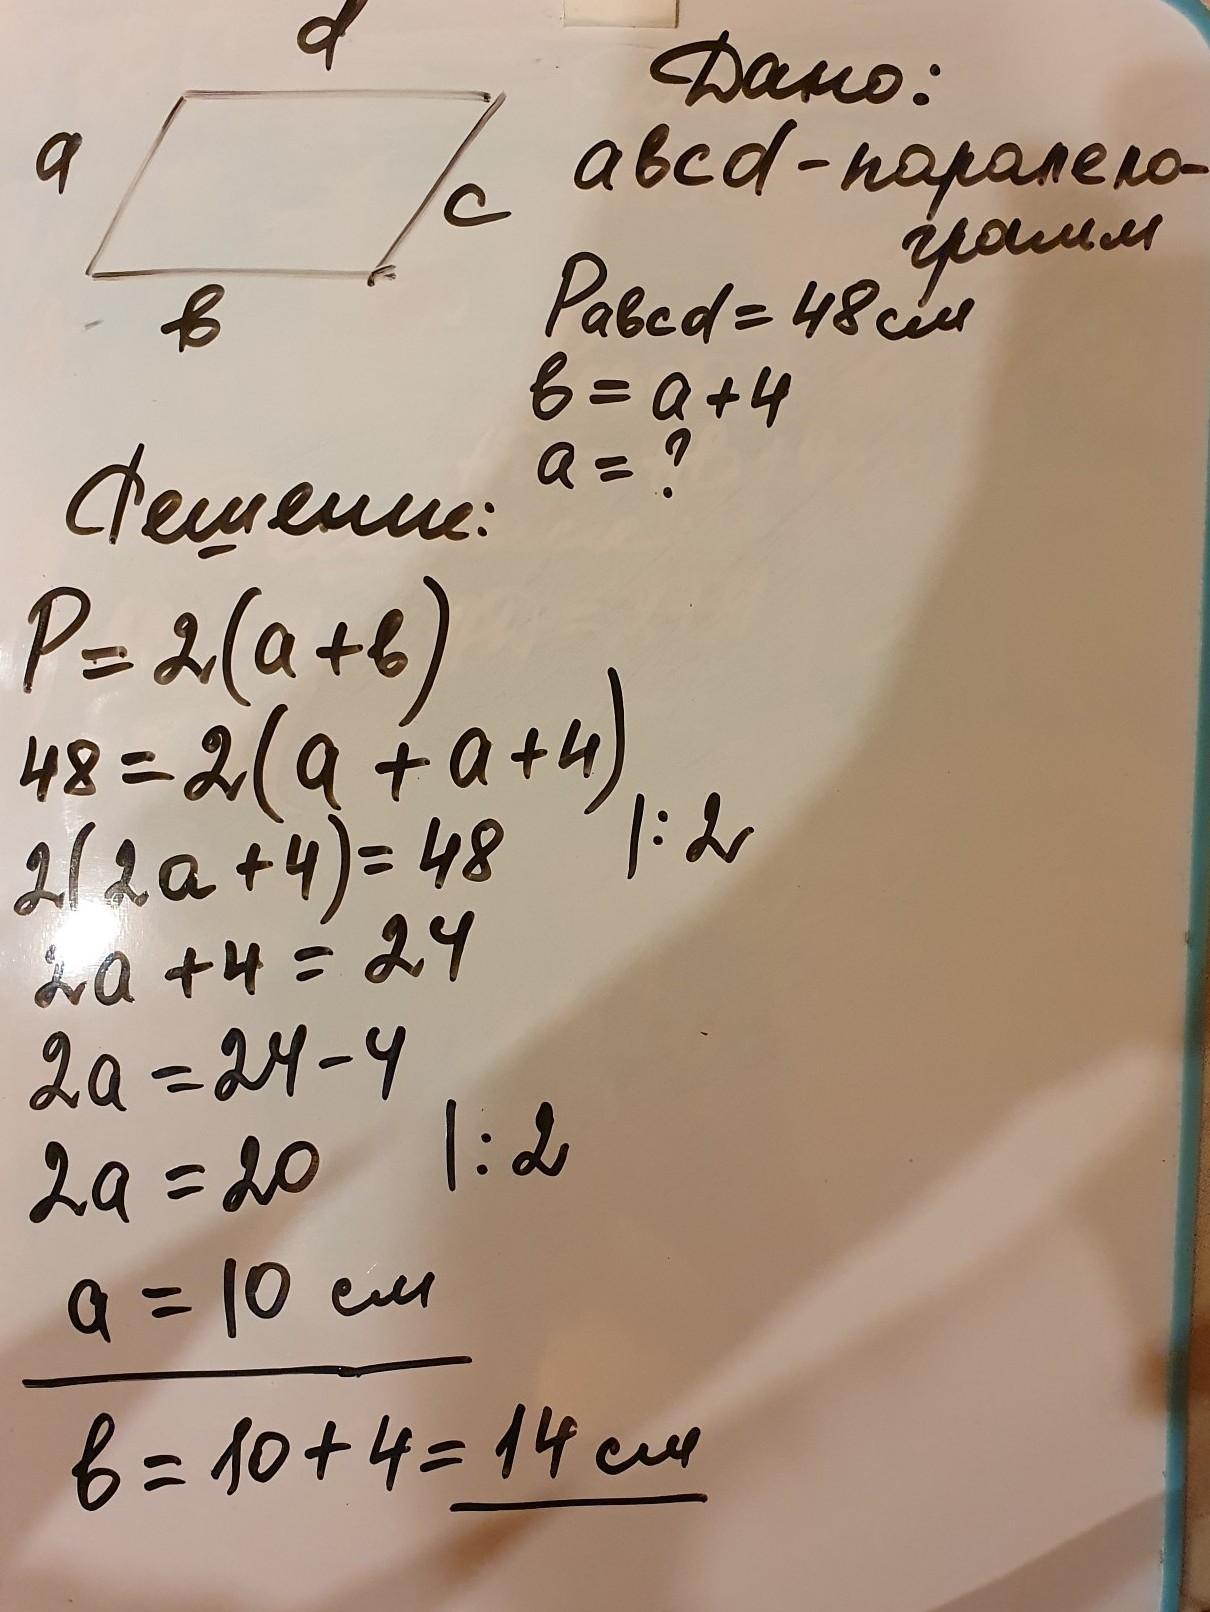 d
a
c
в
Дано:
авсd-паралело-
грамм
Равсd = 48см
в = а + 4
а = ?
Решение:
Р = 2(а+в)
48 = 2(а + а + 4)
2(2а + 4) = 48 |: 2
2а + 4 = 24
2а = 24 - 4
2а = 20 |: 2
а = 10 см
в = 10 + 4 = 14 см